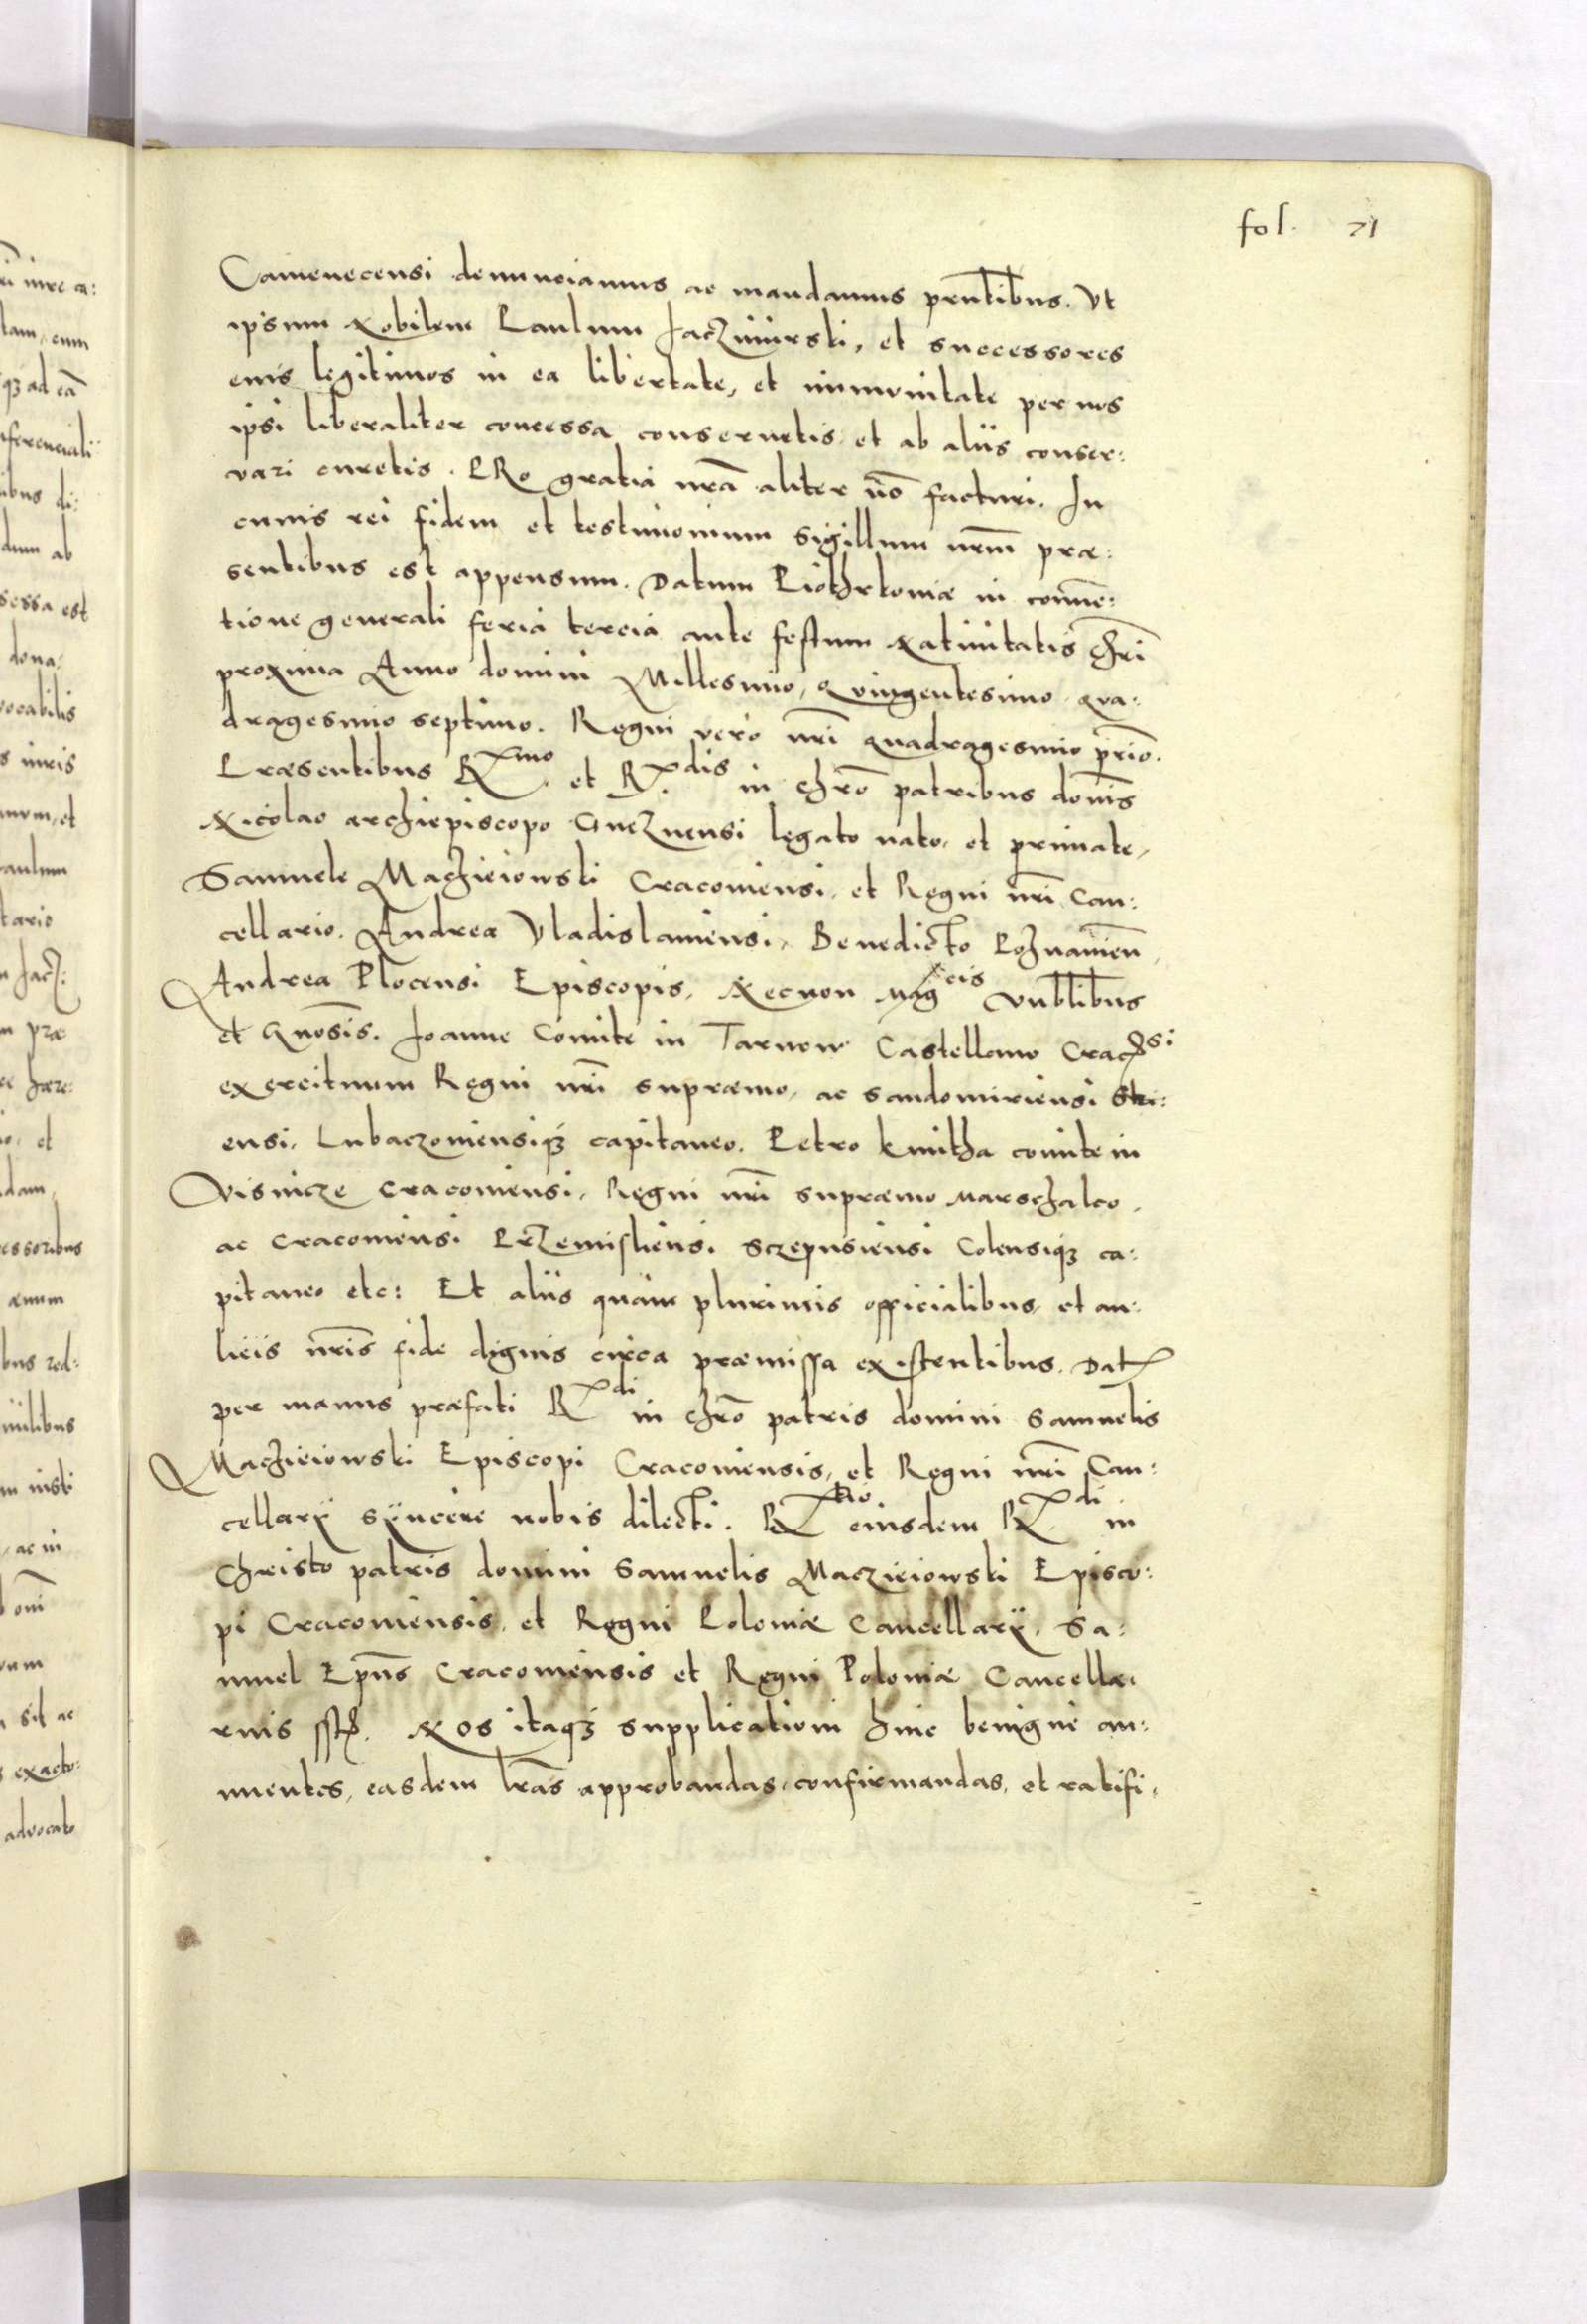 fol. 21
Camenecensi denunciamus ac mandamus pr̃ntibus. Vt
ipsum Nobilem Paulum Jaczimirski, et successores
eius legitimos in ea libertate, et immunitate per nos
ipsi liberaliter concessa conseruetis et ab aliis conser:
vari curetis. PRo gratia nrã aliter nõ facturi. In
cuius rei fidem et testimonium sigillum nrm̃ præ:
sentibus est appensum. Datum Piothrkoviæ in conuẽ:
tione generali feria tercia ante festum Natiuitatis chrĩ
proxima Anno domini Millesimo, Quingentesimo qua:
dragesimo septimo. Regni vero nrĩ quadragesimo prĩo.
Præsentibus Rmo et Rdis in chrõ patribus domĩs
Nicolao archiepiscopo Gneznensi legato nato, et primate,
Samuele Machieiowski Cracouiensi, et Regni nrĩ Can:
cellario. Andrea Vladislauiensi, Benedicto Poznanieñ,
Andrea Plocensi Episcopis, Necnon Magcis
et Gnosĩs. Joanne Comite in Tarnow Castellano Cracsi
exercituum Regni nrĩ supræmo, ac sandomiriensi Stri:
ensi, Lubaczouiensiqȝ capitaneo. Petro kmitha comite in
Visnicze Cracouiensi, Regni nrĩ supræmo Marschalco,
ac Cracouiensi Przemisliensi Sczepusiensi Colensiqȝ ca:
pitaneo etc: Et aliis quam plurimis officialibus, et au:
licis nrĩs fide dignis circa præmissa existentibus. Dat
per manus præfati Rdi in chrõ patris domini Samuelis
Machieiowski Episcopi Cracouiensis, et Regni nrĩ Can:
cellarÿ sÿncere nobis dilecti. Rtio eiusdem Rdi in
Christo patris domini Samuelis Maczieiowski Episco:
pi Cracouiensis, et Regni Poloniæ Cancellarÿ. Sa:
muel Epũs Cracouiensis et Regni Poloniæ Cancella:
rius sst. Nos itaqȝ supplicationi huic benigne an:
nuentes, easdem lrãs approbandas, confirmandas, et ratifi,